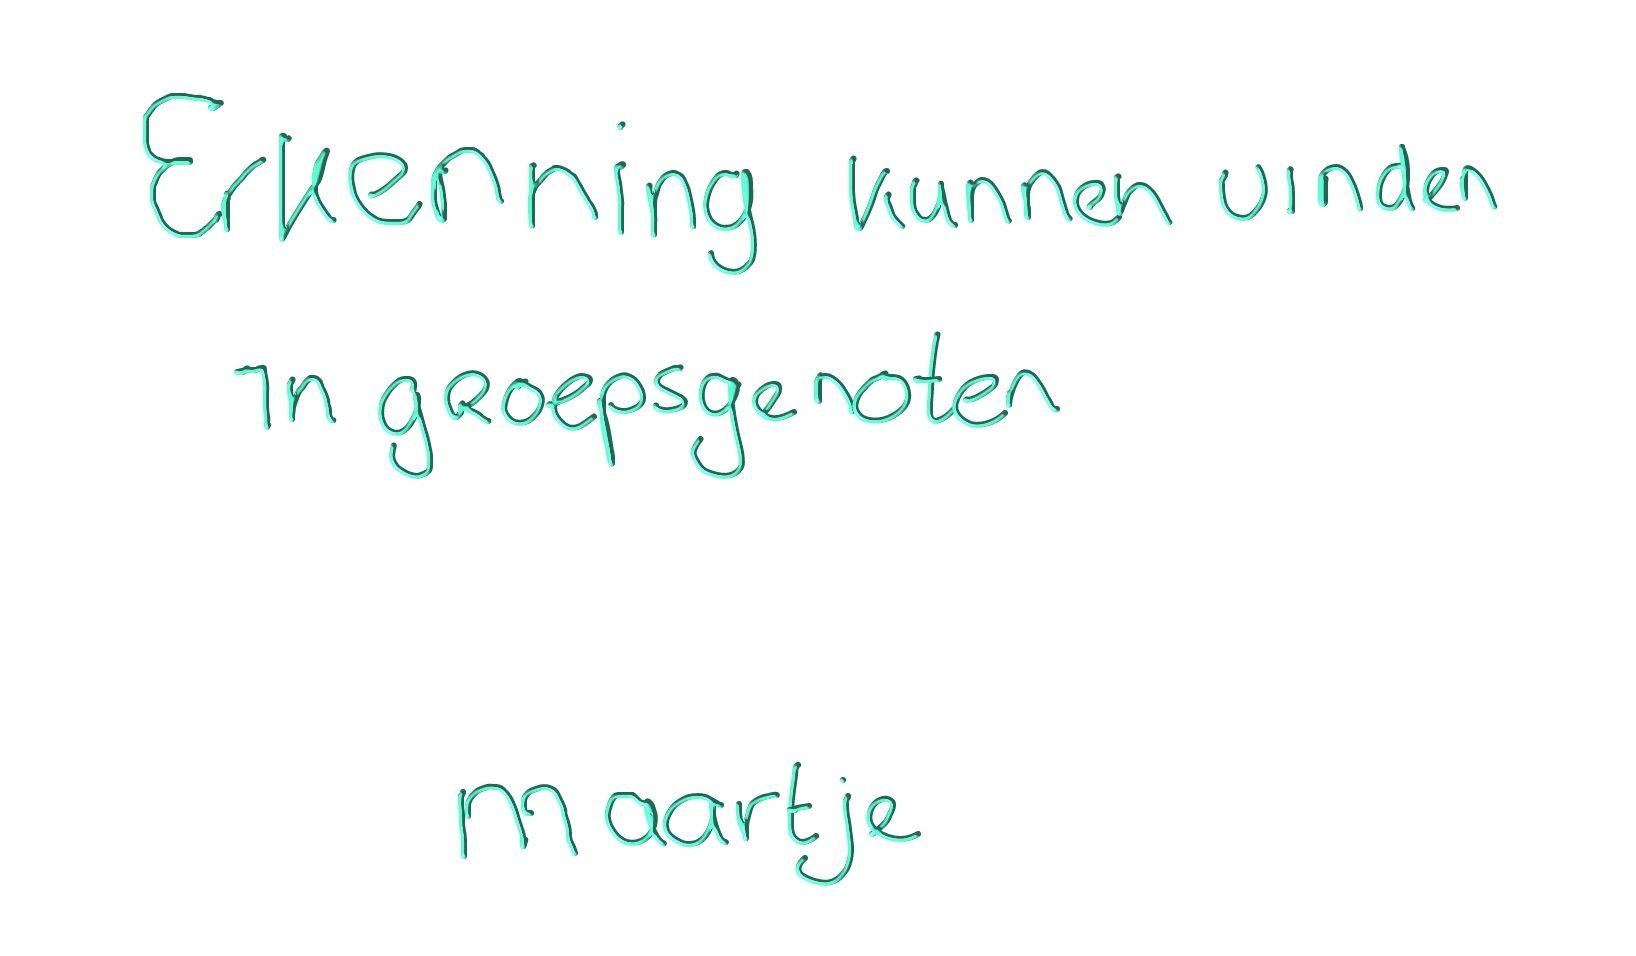 Erkenning kunnen vinden
in groepsgenoten
maartje